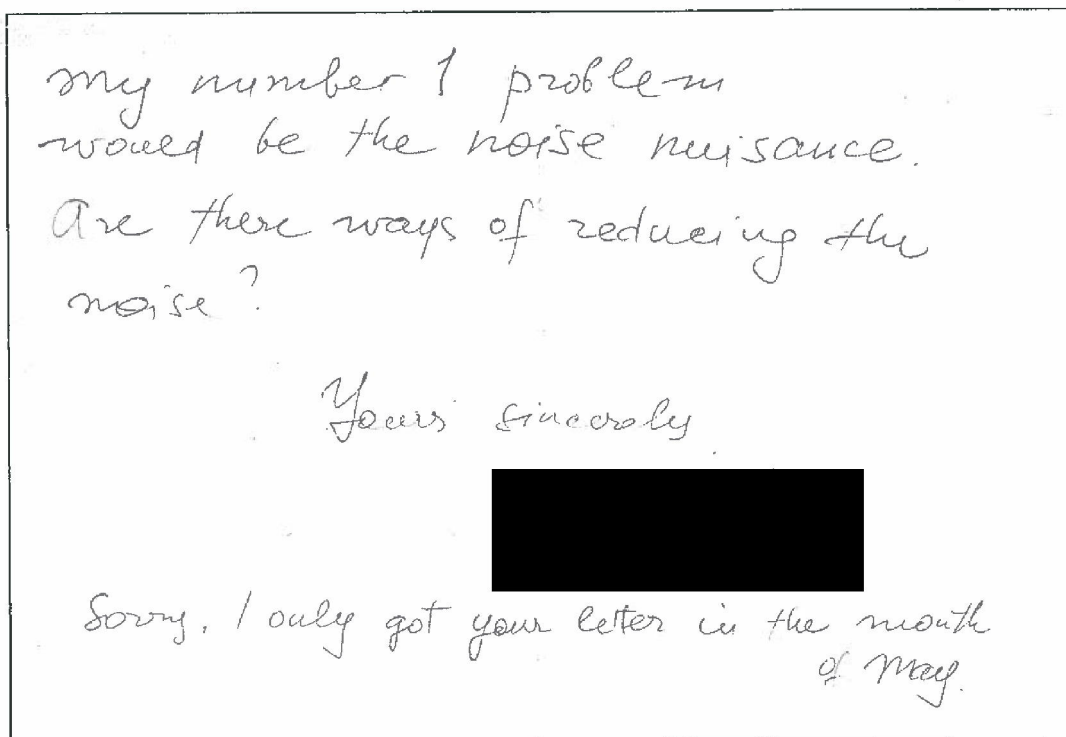 My number 1 problem
would be the noise nuisance.
Are there ways of reducing the
noise?
Yours sincerely
Sorry, I only got your letter in the month
of May.